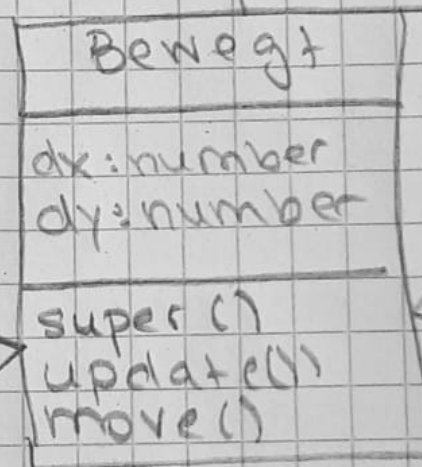 Bewegt
dx:number
dy:number
super()
update()
move()